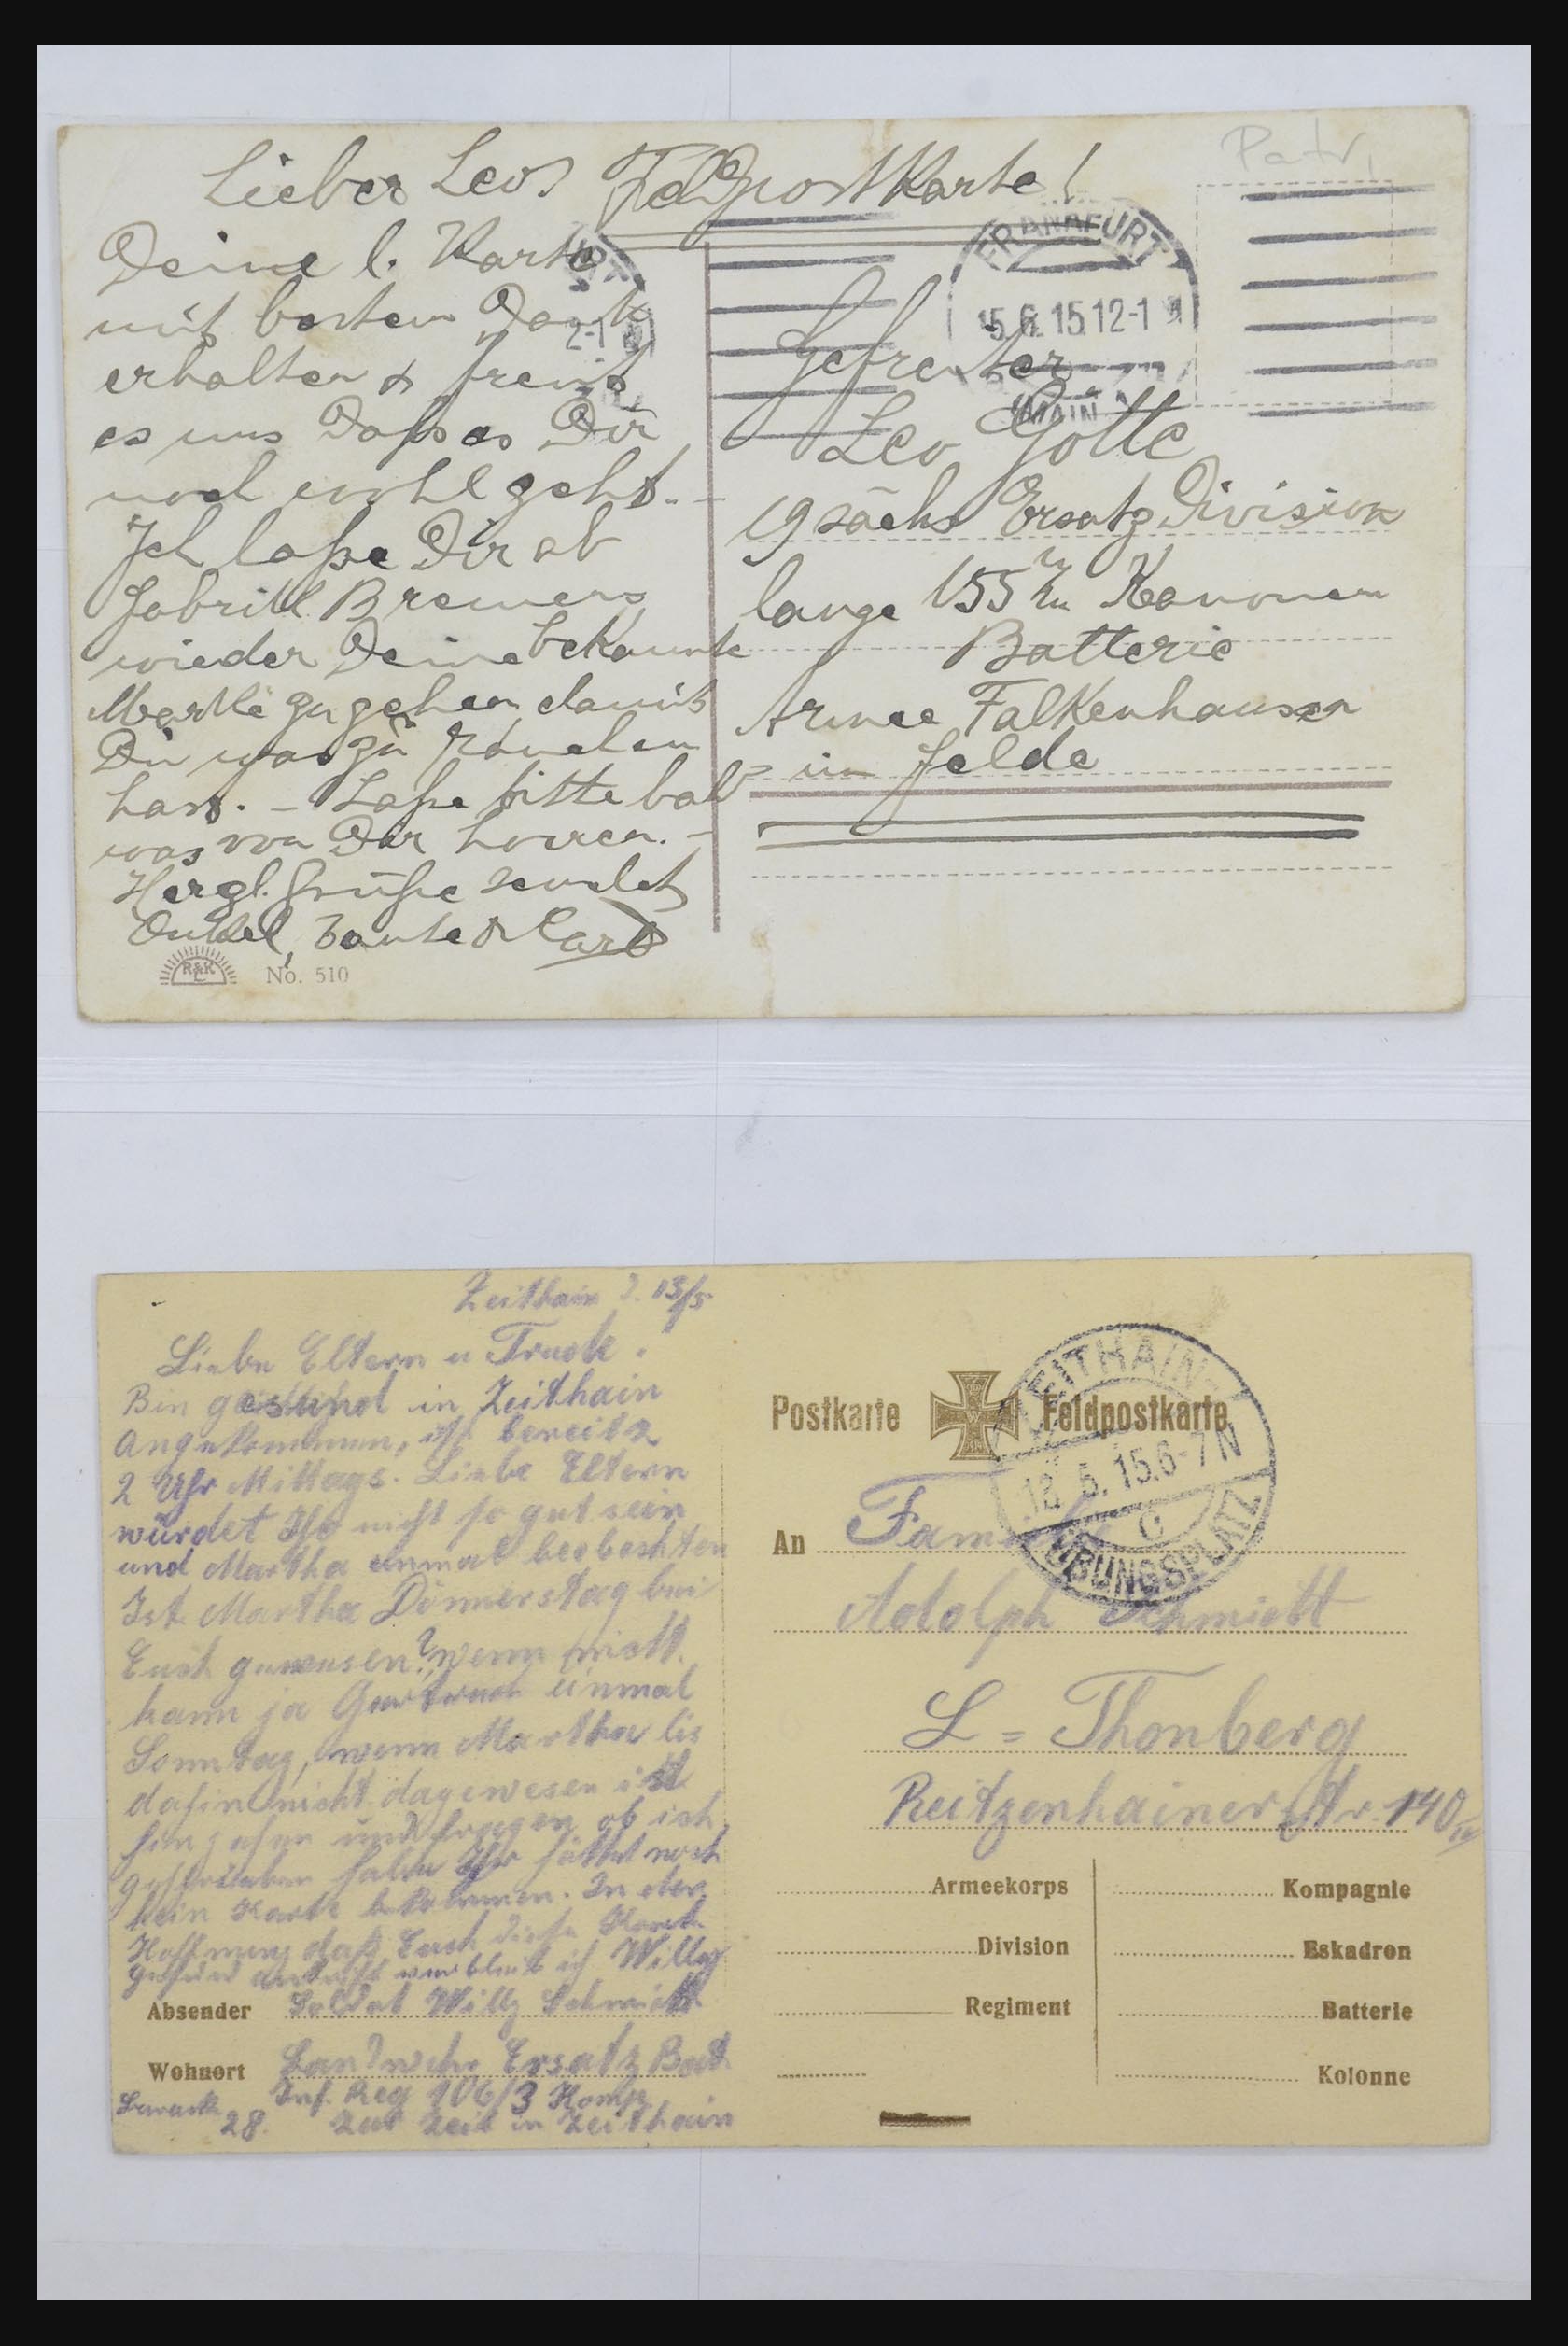 Patr.
Lieber Leo! Feldpostkarte!
Deine l. Karte
mit bestem Dank
erhalten & freut
es uns daß es Dir
noch wohl geht. -
Ich laße Dir ab
Fabrik Bremen
wieder Deine bekannte
Marke zugehen damit
Du was zu
hast. - Laße bitte bald
was von Dir hören. -
Herzl. Grüße sendet
Onkel, Tante & Carl
R&K
L
No. 510
FRANKFURT
15.6.15.12-1
(MAIN)
Gefreiter
Leo Gotte
19 sächs Ersatz Division
lange 155 Kanonen
Batterie
Armee Falkenhausen
im Felde
Zeithain d. 13/5
Liebe Eltern u Trude.
Bin gesund in Zeithain
angekommen, ist bereits
2 Uhr Mittags. Liebe Eltern
würdet Ihr nicht so gut sein
und Martha einmal beobachten
Ist Martha Donnerstag bei
Euch gewesen? wenn nicht.
kann ja Gertrud einmal
Sonntag, wenn Martha bis
dahin nicht dagewesen ist
hingehen und fragen ob ich
geschrieben habe Ihr hättet noch
kein Karte bekommen. In der
Hoffnung daß Euch diese Karte
gesund antrifft verbleib ich Willy
Absender Soldat Willy Schmidt
Wohnort Landwehr Ersatz Batl.
Inf. Reg 106/3 Komp
28. Zur Zeit in Zeithain
Postkarte Feldpostkarte
ZEITHAIN
13.5.15.6-7N
C
ÜBUNGSPLATZ
An Familie
Adolph Schmidt
L = Thonberg
Reitzenhainer Str. 140
Armeekorps Kompagnie
Division Eskadron
Regiment Batterie
Kolonne